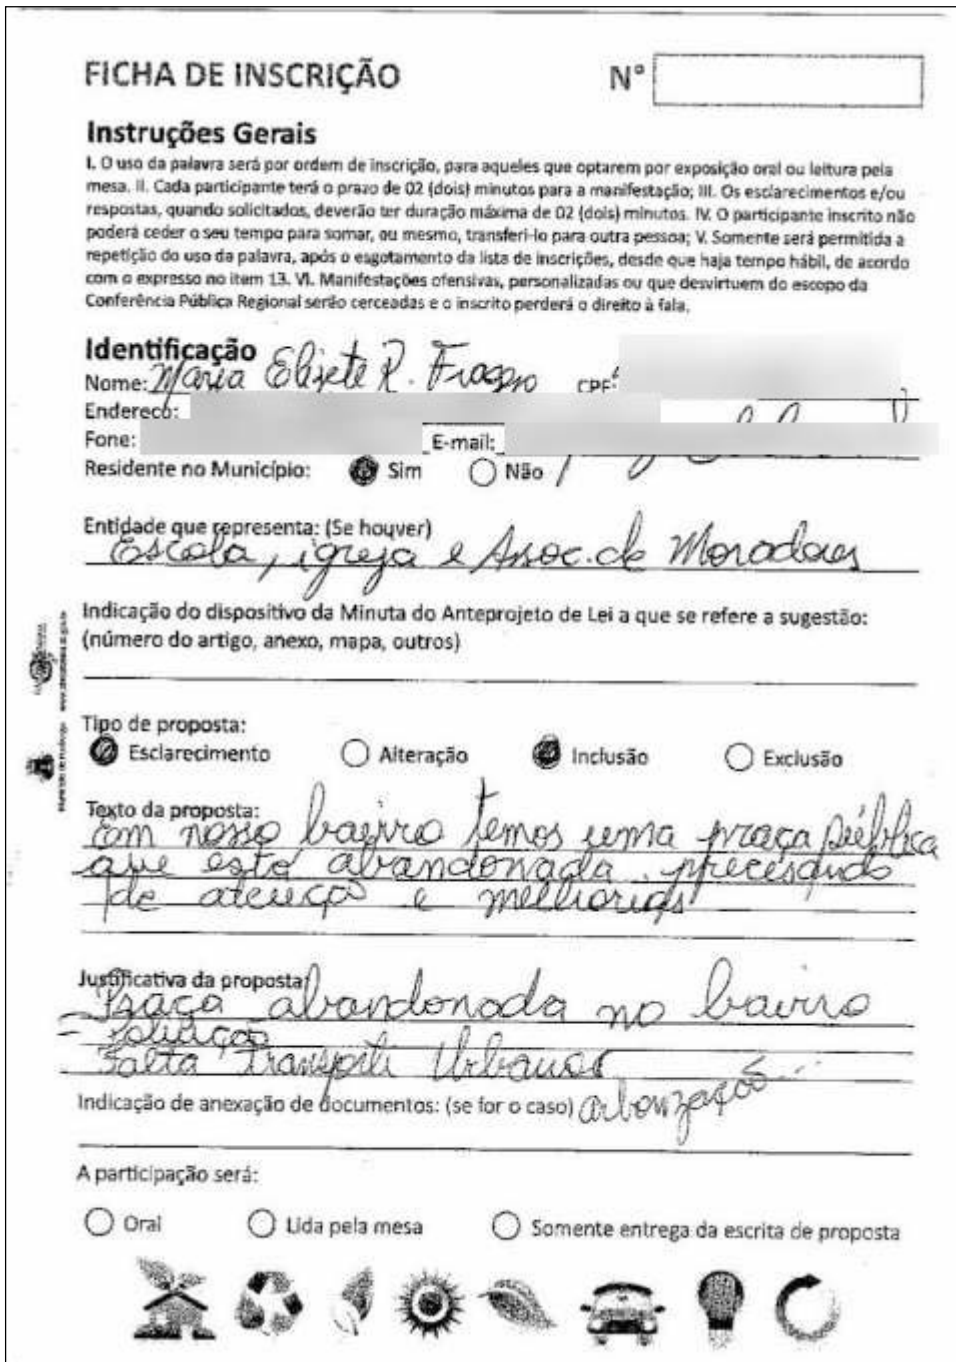 FICHA DE INSCRIÇÃO
N°
Instruções Gerais
I. O uso da palavra será por ordem de inscrição, para aqueles que optarem por exposição oral ou leitura pela
mesa. II. Cada participante terá o prazo de 02 (dois) minutos para a manifestação; III. Os esclarecimentos e/ou
respostas, quando solicitados, deverão ter duração máxima de 02 (dois) minutos. IV. O participante inscrito não
poderá ceder o seu tempo para somar, ou mesmo, transferi-lo para outra pessoa; V. Somente será permitida a
repetição do uso da palavra, após o esgotamento da lista de inscrições, desde que haja tempo hábil, de acordo
com o expresso no item 13. VI. Manifestações ofensivas, personalizadas ou que desvirtuem do escopo da
Conferência Pública Regional serão cerceadas e o inscrito perderá o direito à fala.
Identificação
Nome: Maria Elizete R. CPF:
Endereço:
Fone: E-mail:
Residente no Município: Sim Não
Entidade que representa: (Se houver)
Escola, igreja e Assoc. de Moradores
Indicação do dispositivo da Minuta do Anteprojeto de Lei a que se refere a sugestão:
(número do artigo, anexo, mapa, outros)
Tipo de proposta:
Esclarecimento Alteração Inclusão Exclusão
Texto da proposta:
Em nosso bairro temos uma praça pública
que está abandonada, precisando
de atenção e melhorias
Justificativa da proposta:
Praça abandonada no bairro
- Poluição
- Falta Transporte Urbanos
Indicação de anexação de documentos: (se for o caso) arborização...
A participação será:
Oral Lida pela mesa Somente entrega da escrita de proposta